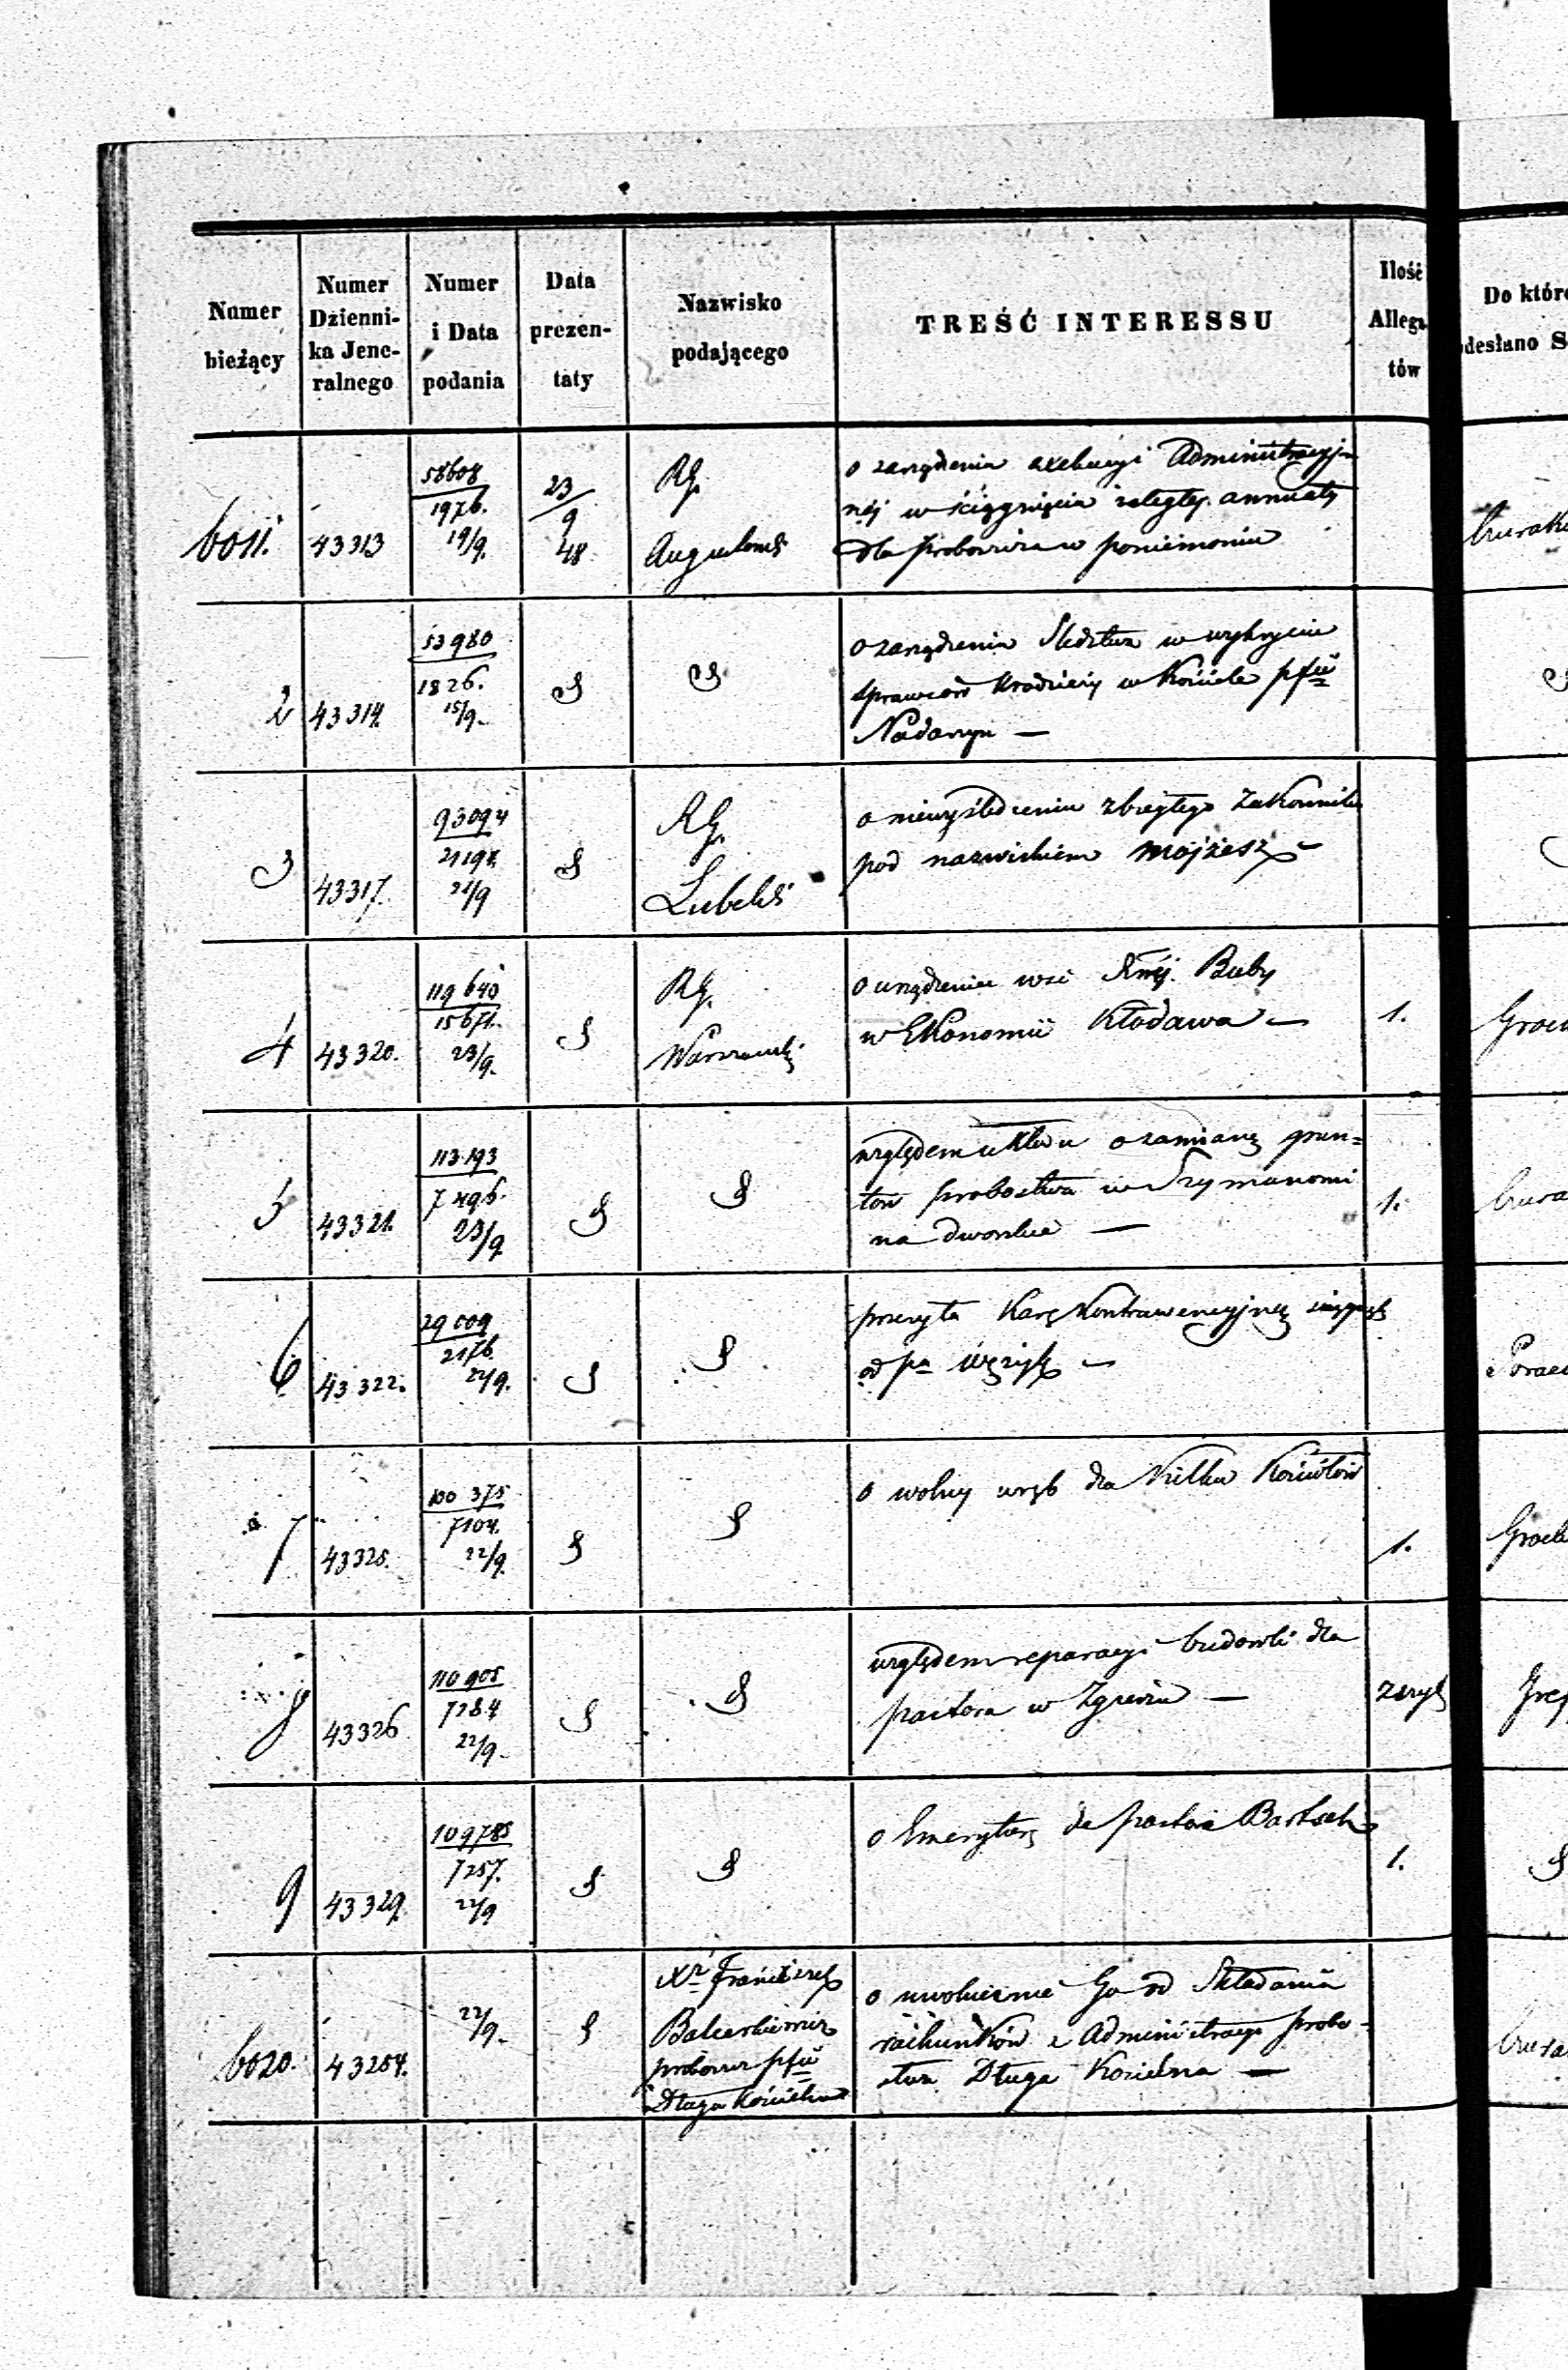 Numer bieżący
Numer Dzienni-ka Jene-ralnego
Numer i Data podania
Data prezen-taty
Nazwisko podającego
TREŚĆ INTERESSU
Ilość Allega-tów
Do któr
odesłano S
6011. 43313
58608
1976.
19/9.
23/9 48
RG.
Augustows
o zarządzenie Administracyj
nej w ściągnięcia zaległej annuaty
dla proboszcza w poniemoniu
2 43314.
53980
1826.
15/9.
o zarządzenie Śledztwa w wykrycie
sprawców kradzieży w Kościele
Nadarzyn —
3 43317.
93094
21198
21/9
RG.
Lubels
o niewyśledzeniu zbiegłego Zakonnika
pod nazwiskiem Mojżesz —
4 43320.
119640
15671.
23/9.
RG.
Warszawski
o urządzenie wsi Buby
w Ekonomii Kłodawa —
1.
5 43321.
113193
7496.
23/9
względem układu o zamianę grun=
tów probostwa w Szymanowi
na dworskie —
1.
6 43322.
29009
2176.
22/9.
przesyła Karę Kontrawencyjną
od
7 43325.
100375
7104.
22/9.
o wolny wrąb dla Kilku Kościołów
1.
8 43326
110905
7284
22/9.
względem reparacyi budowli dla
pastora w Zgierzu —
9 43329.
109785
7257.
22/9
o Emeryturę dla pastora Bartsch
1.
6020. 43254.
22/9.
Xdz Franciszek
proboszcz
Długa Kościelna
o uwolnienie Go od Składania
rachunków z Administracyi probo-
stwa Długa Kościelna —